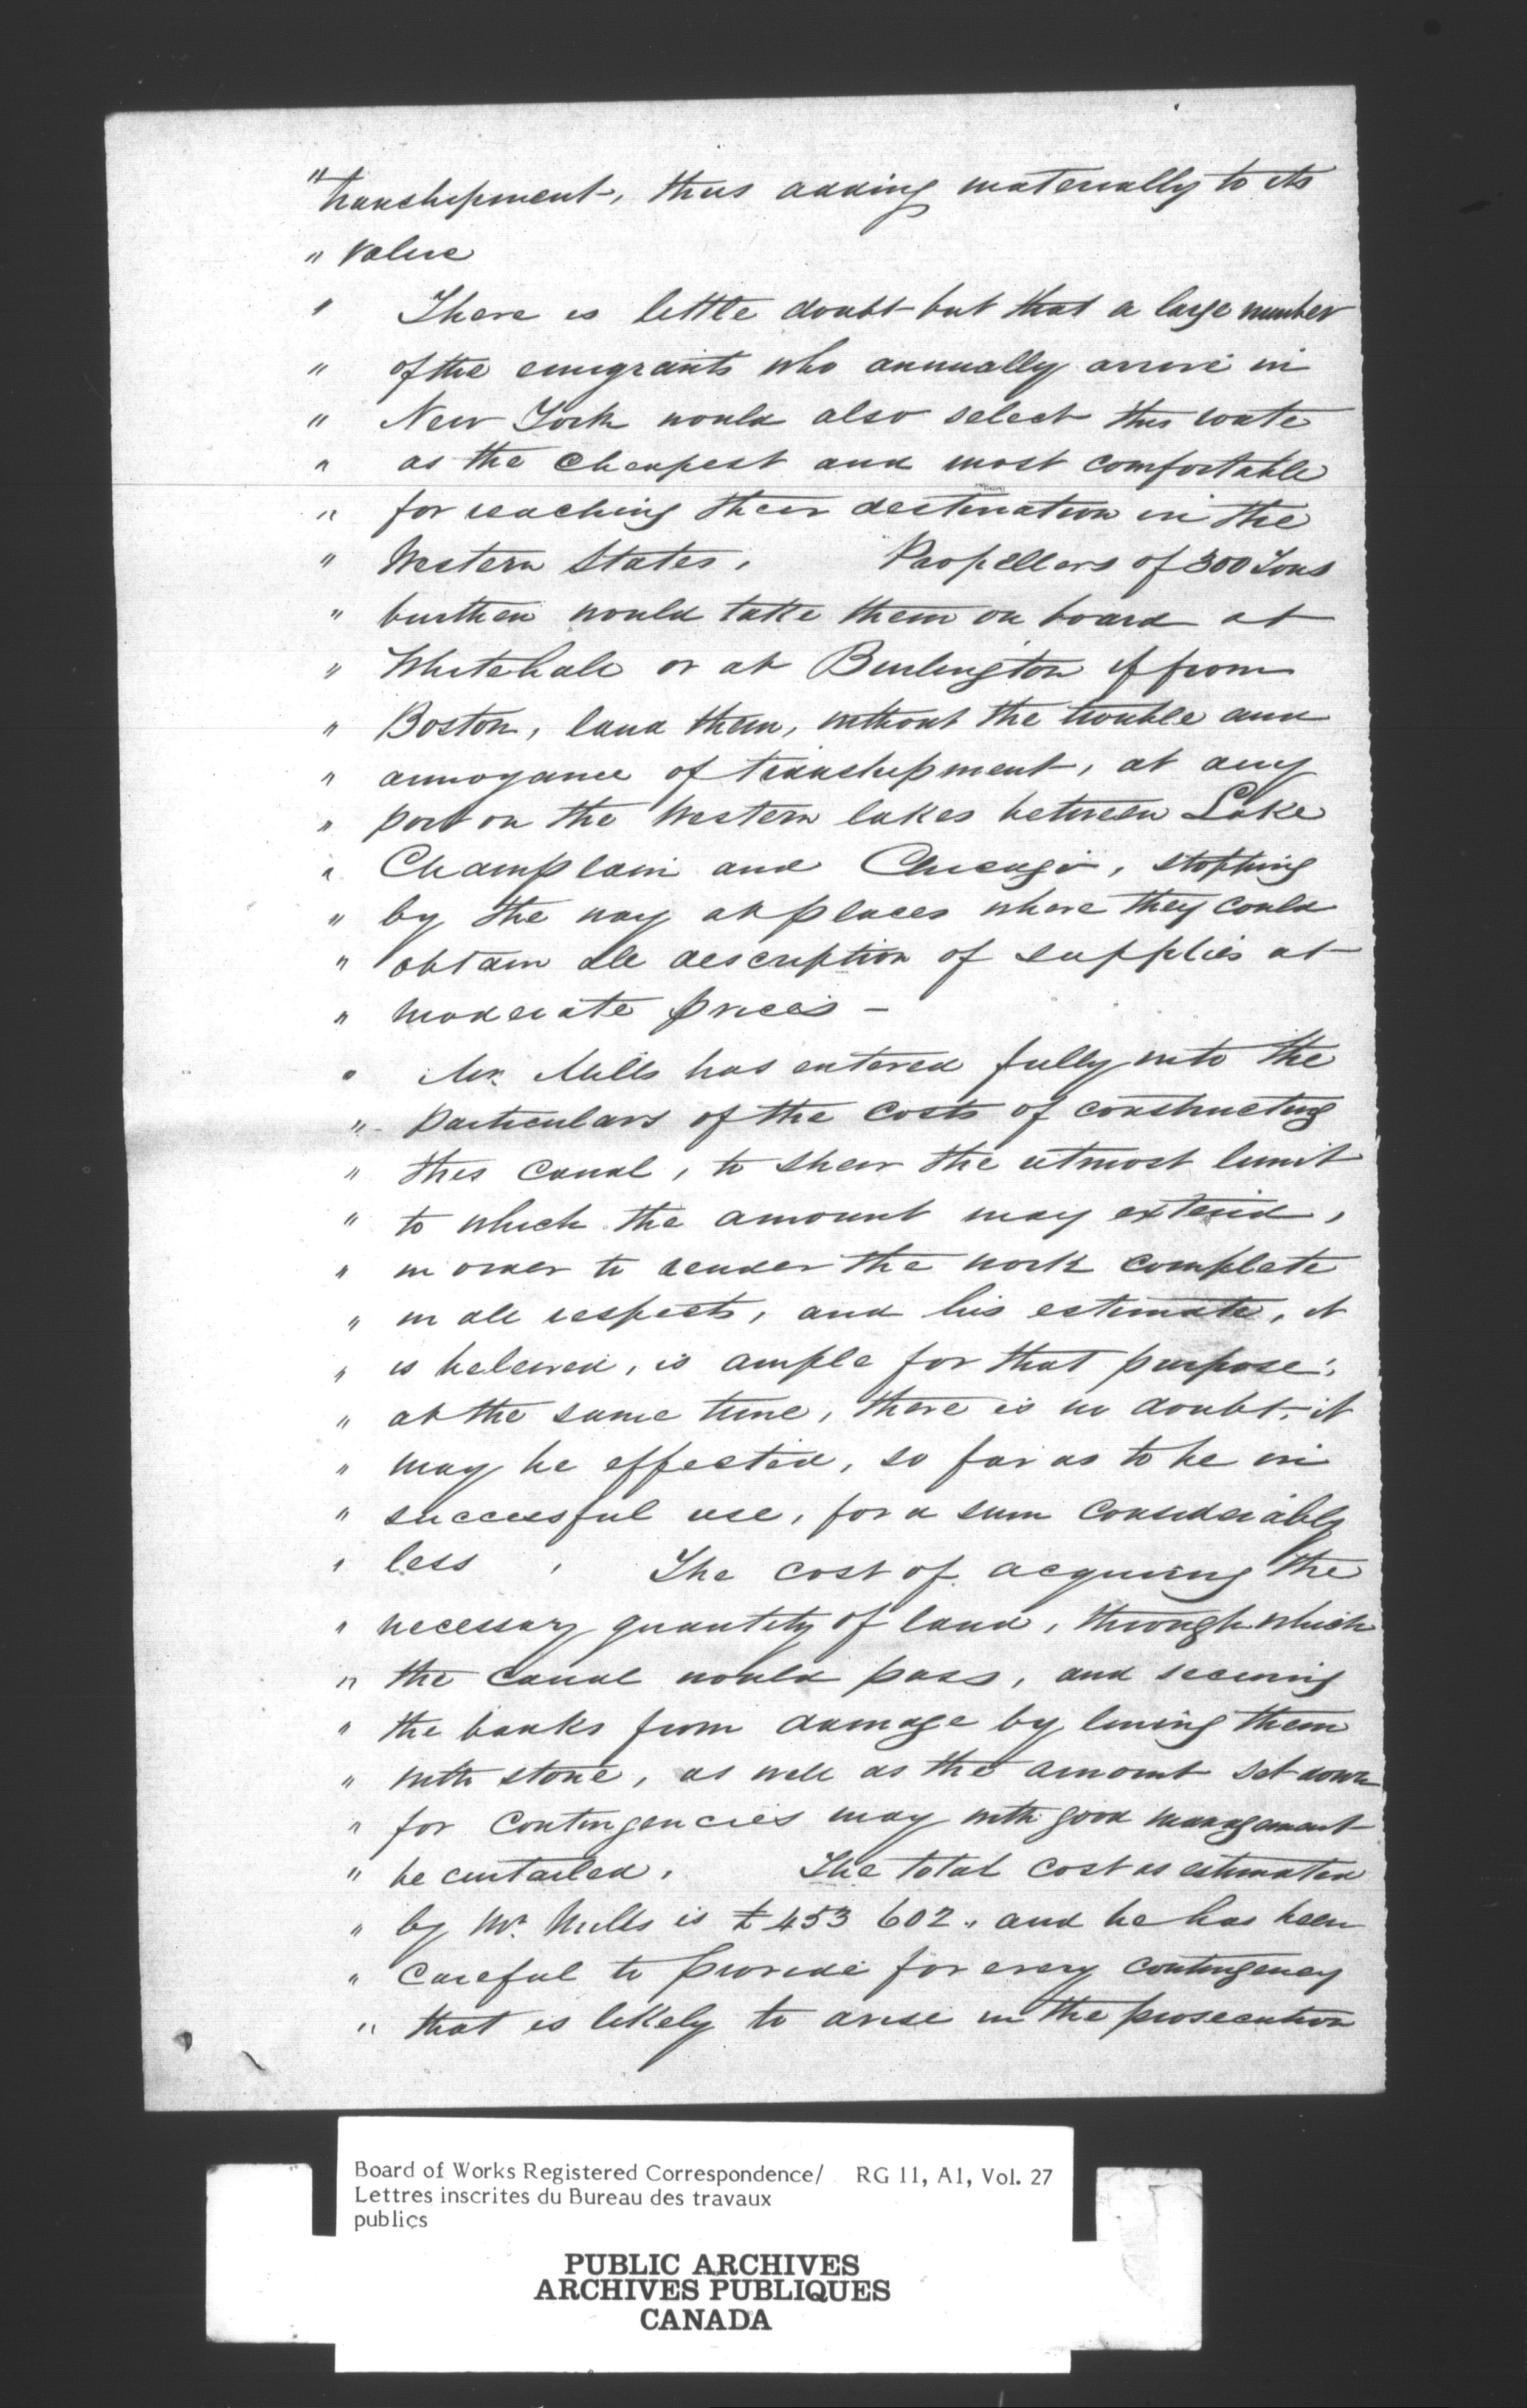 " transhipment, thus adding materially to its
" value
" There is little doubt but that a large number
" of the emigrants who annually arrive in
" New York would also select this route
" as the cheapest and most comfortable
" for reaching their destination in the
" Western States. Propellers of 300 Tons
" burthen would take them on board at
" Whitehall or at Burlington if from
" Boston, land them, without the trouble and
" annoyance of transhipment, at any
" port on the Western lakes between Lake
" Champlain and Chicago, stopping
" by the way at places where they could
" obtain all description of supplies at
" moderate prices -
" Mr. Mills has entered fully into the
" particulars of the costs of constructing
" this Canal, to shew the utmost limit
" to which the amount may extend,
" in order to render the work complete
" in all respects, and his estimate, it
" is believed, is ample for that purpose;
" at the same time, there is no doubt, it
" may be effected, so far as to be in
" successful use, for a sum considerably
" less. The cost of acquiring the
" necessary quantity of land, through which
" the Canal would pass, and securing
" the banks from damage by lining them
" with stone, as well as the amount set down
" for Contingencies may with good management
" be curtailed. The total cost as estimated
" by Mr. Mills is £453 602., and he has been
" careful to provide for every contingency
" that is likely to arise in the prosecution
Board of Works Registered Correspondence/ RG 11, A1, Vol. 27
Lettres inscrites du Bureau des travaux
publics
PUBLIC ARCHIVES
ARCHIVES PUBLIQUES
CANADA